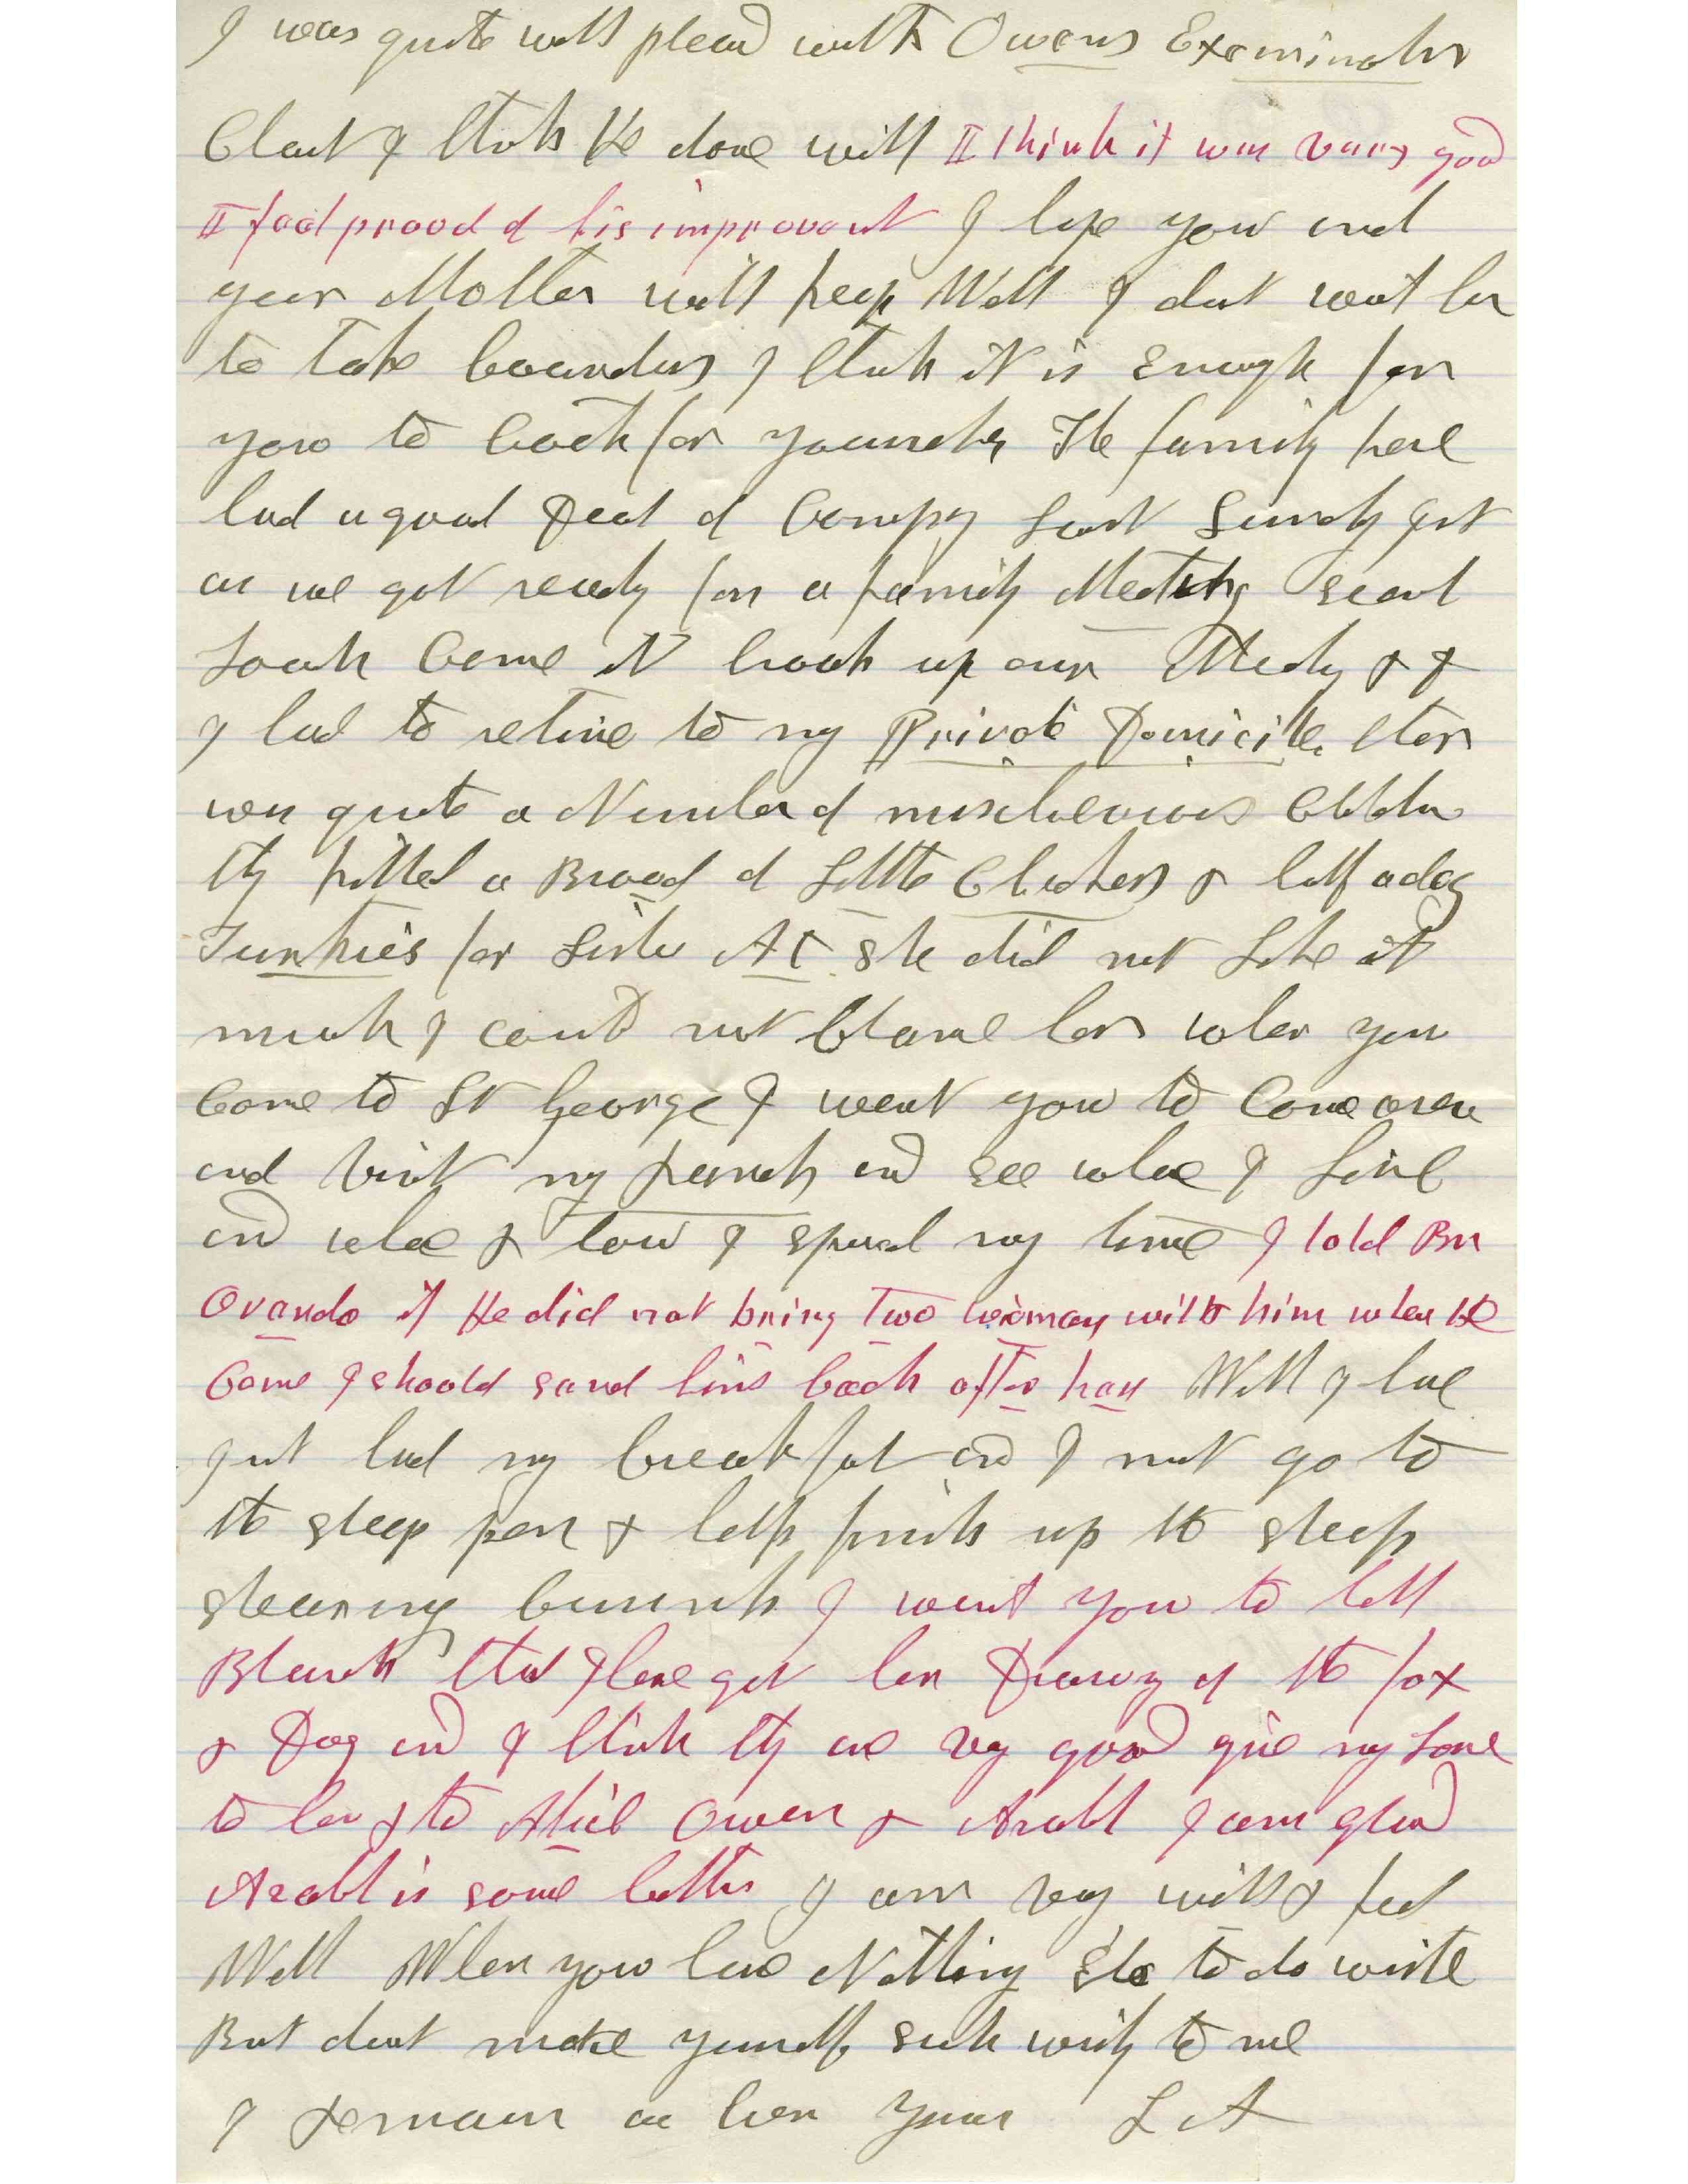 I was quite well pleasd with Owens Examination
Chart I think He done well I think it was vary good
I feel prood of his improvement I hope you and
your Mother will keep Well I dont want her
to take boarders I think it is Enough for
you to Cook for yourselves The family here
had a good Deal of Company Last Sunday just
as we got ready for a family Meeting several
Loads Come it broak up our Meeting & I
I had to retire to my Private Domicile ther
was quite a Number of mischievous Children
they killed a Brood of Little Chickens & half a doz
Turkies for Sister At She did not Like it
much I could not blame her when you
Come to St George I want you to Come over
and visit my Ranch and see whare I Live
and whare & how I spend my time I told Br
Ovando if He did not bring Two woman with him when He
Came I should send him back after her Well I have
just had my breakfast and I must go to
the sheep pen & help finish up the sheep
shearing business I want you to tell
Blanch that I have got her Drawing of the fox
& Dog and I think they are very good give my Love
to her & to Alice Owen & Asahl I am glad
Asahl is some better I am very well & feel
Well When you have Nothing Else to do write
But dont make yourself sick writing to me
I Remain as Ever Yours L A